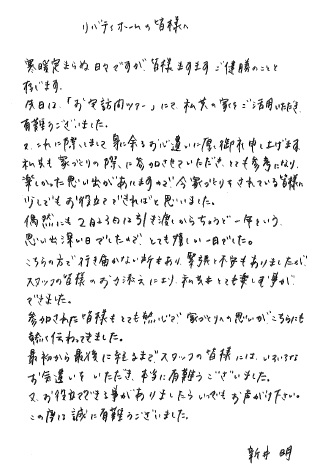 リバティホームの皆様へ
寒暖定まらぬ日々ですが、皆様ますますご健勝のことと
存じます。
先日は、「お宅訪問ツアー」にて、私共の家をご活用いただき、
有難うございました。
又、これに際しまして身に余るお心遣いに厚く御礼申し上げます。
私共も家づくりの際に参加させていただき、とても参考になり、
楽しかった思い出がありますので今家づくりをされている皆様に
少しでもお役立てできればと思いました。
偶然にも2月3日は引き渡しからちょうど一年という、
思い出深い日でしたので、とても嬉しい一日でした。
こちらの方で行き届かない所もあり、緊張と不安もありましたが、
スタッフの皆様のお力添えにより、私共もとても楽しむ事が
できました。
参加された皆様もとても熱心で、家づくりへの思いがこちらにも
熱く伝わってきました。
最初から最後に至るまでスタッフの皆様には、いろいろな
お気遣いをいただき、本当に有難うございました。
又、お役立てできる事がありましたらいつでもお声がけ下さい。
この度は誠に有難うございました。
新井 明